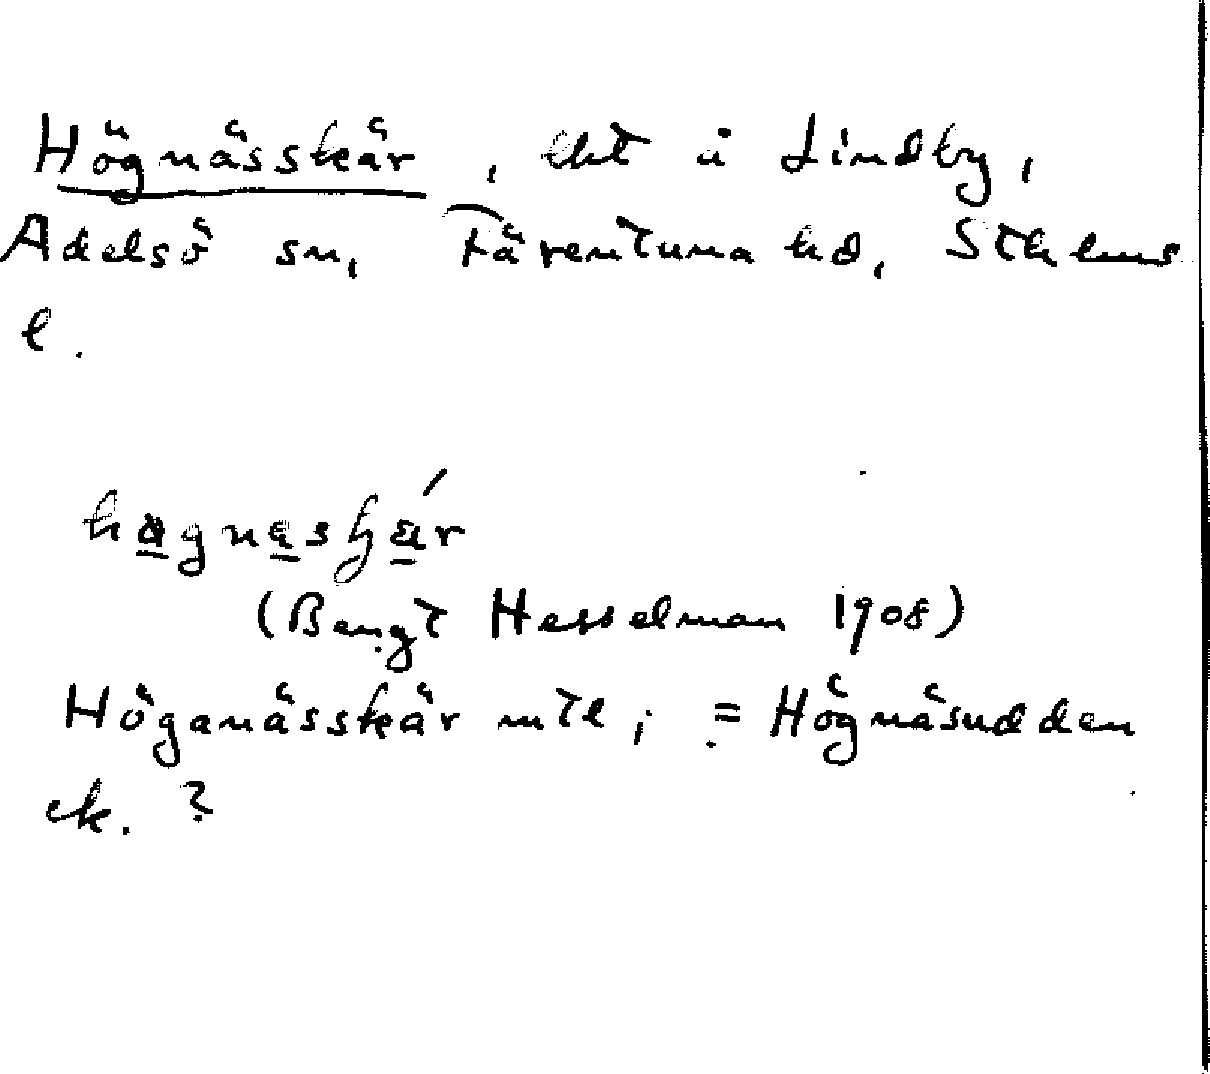 Högnässkär, lht i Lindby,
Adelsö sn, Färentuna hd, Sthlms
l.
(Bengt Hesselman 1908)
Höganässkär mtl; = Högnäsudden
ek. ?